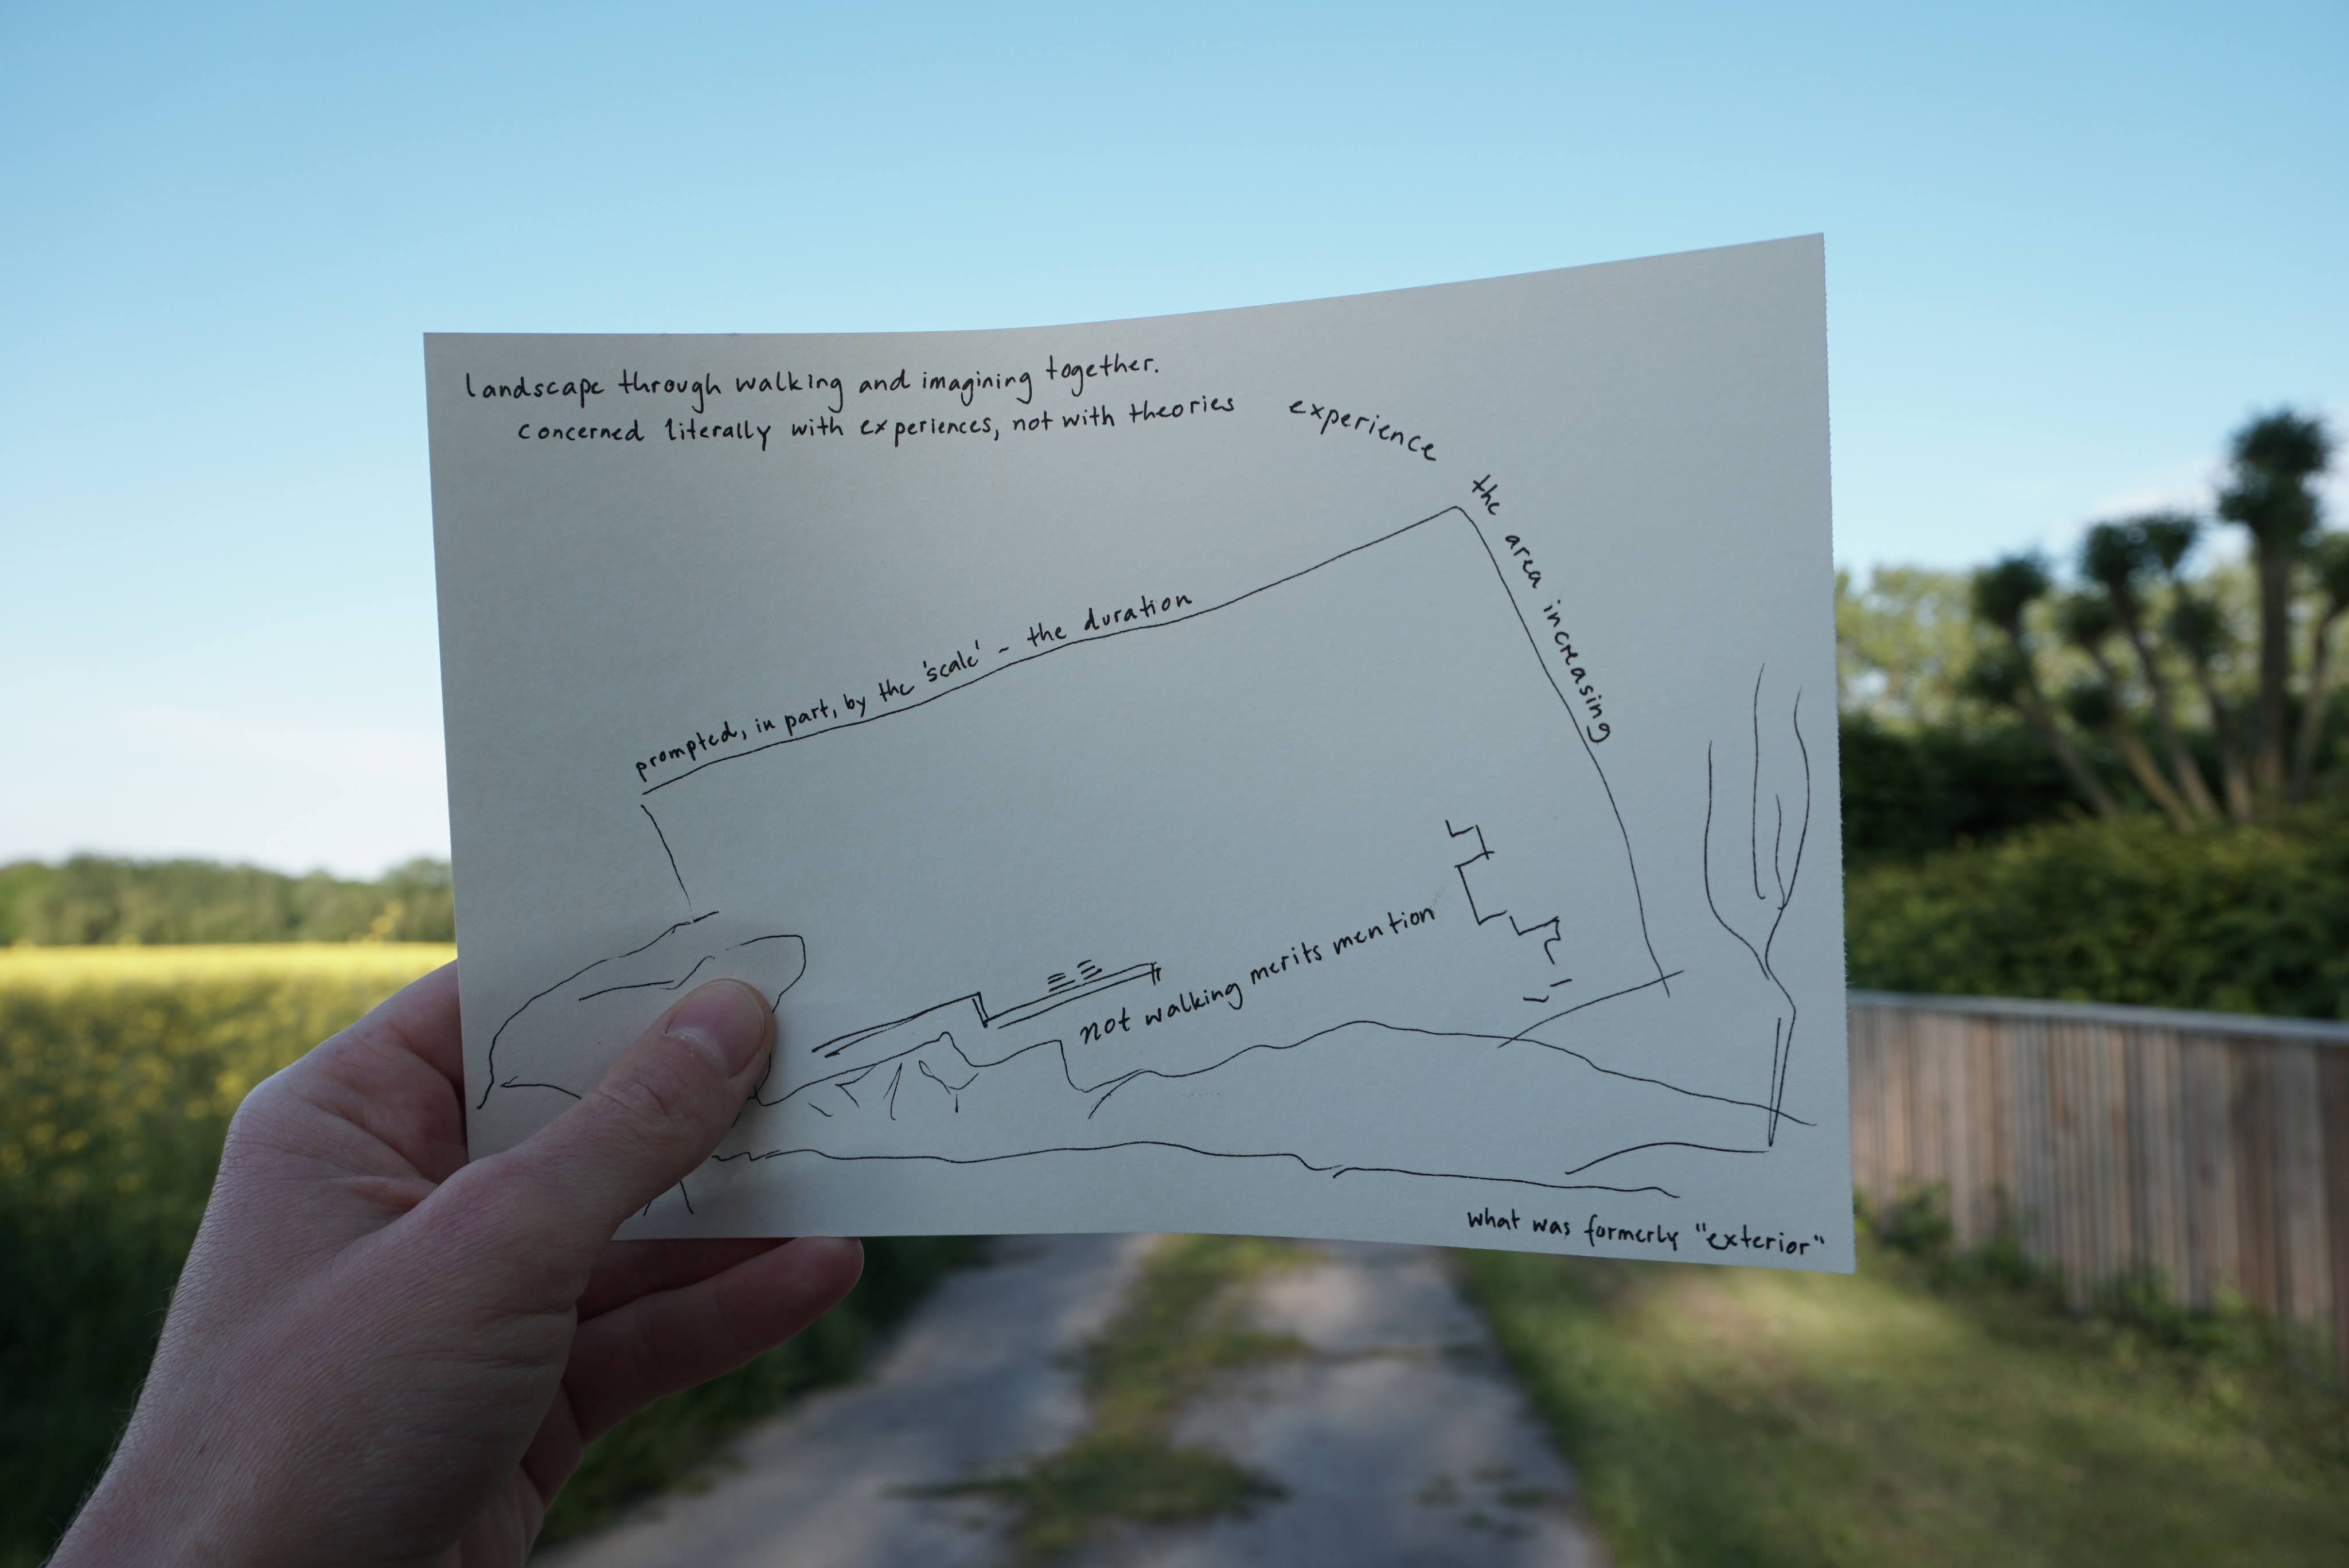 landscape through walking and imagining together.
concerned literally with experiences, not with theories
experience the area increasing
prompted, in part, by the 'scale' - the duration
not walking merits mention
what was formerly "exterior"